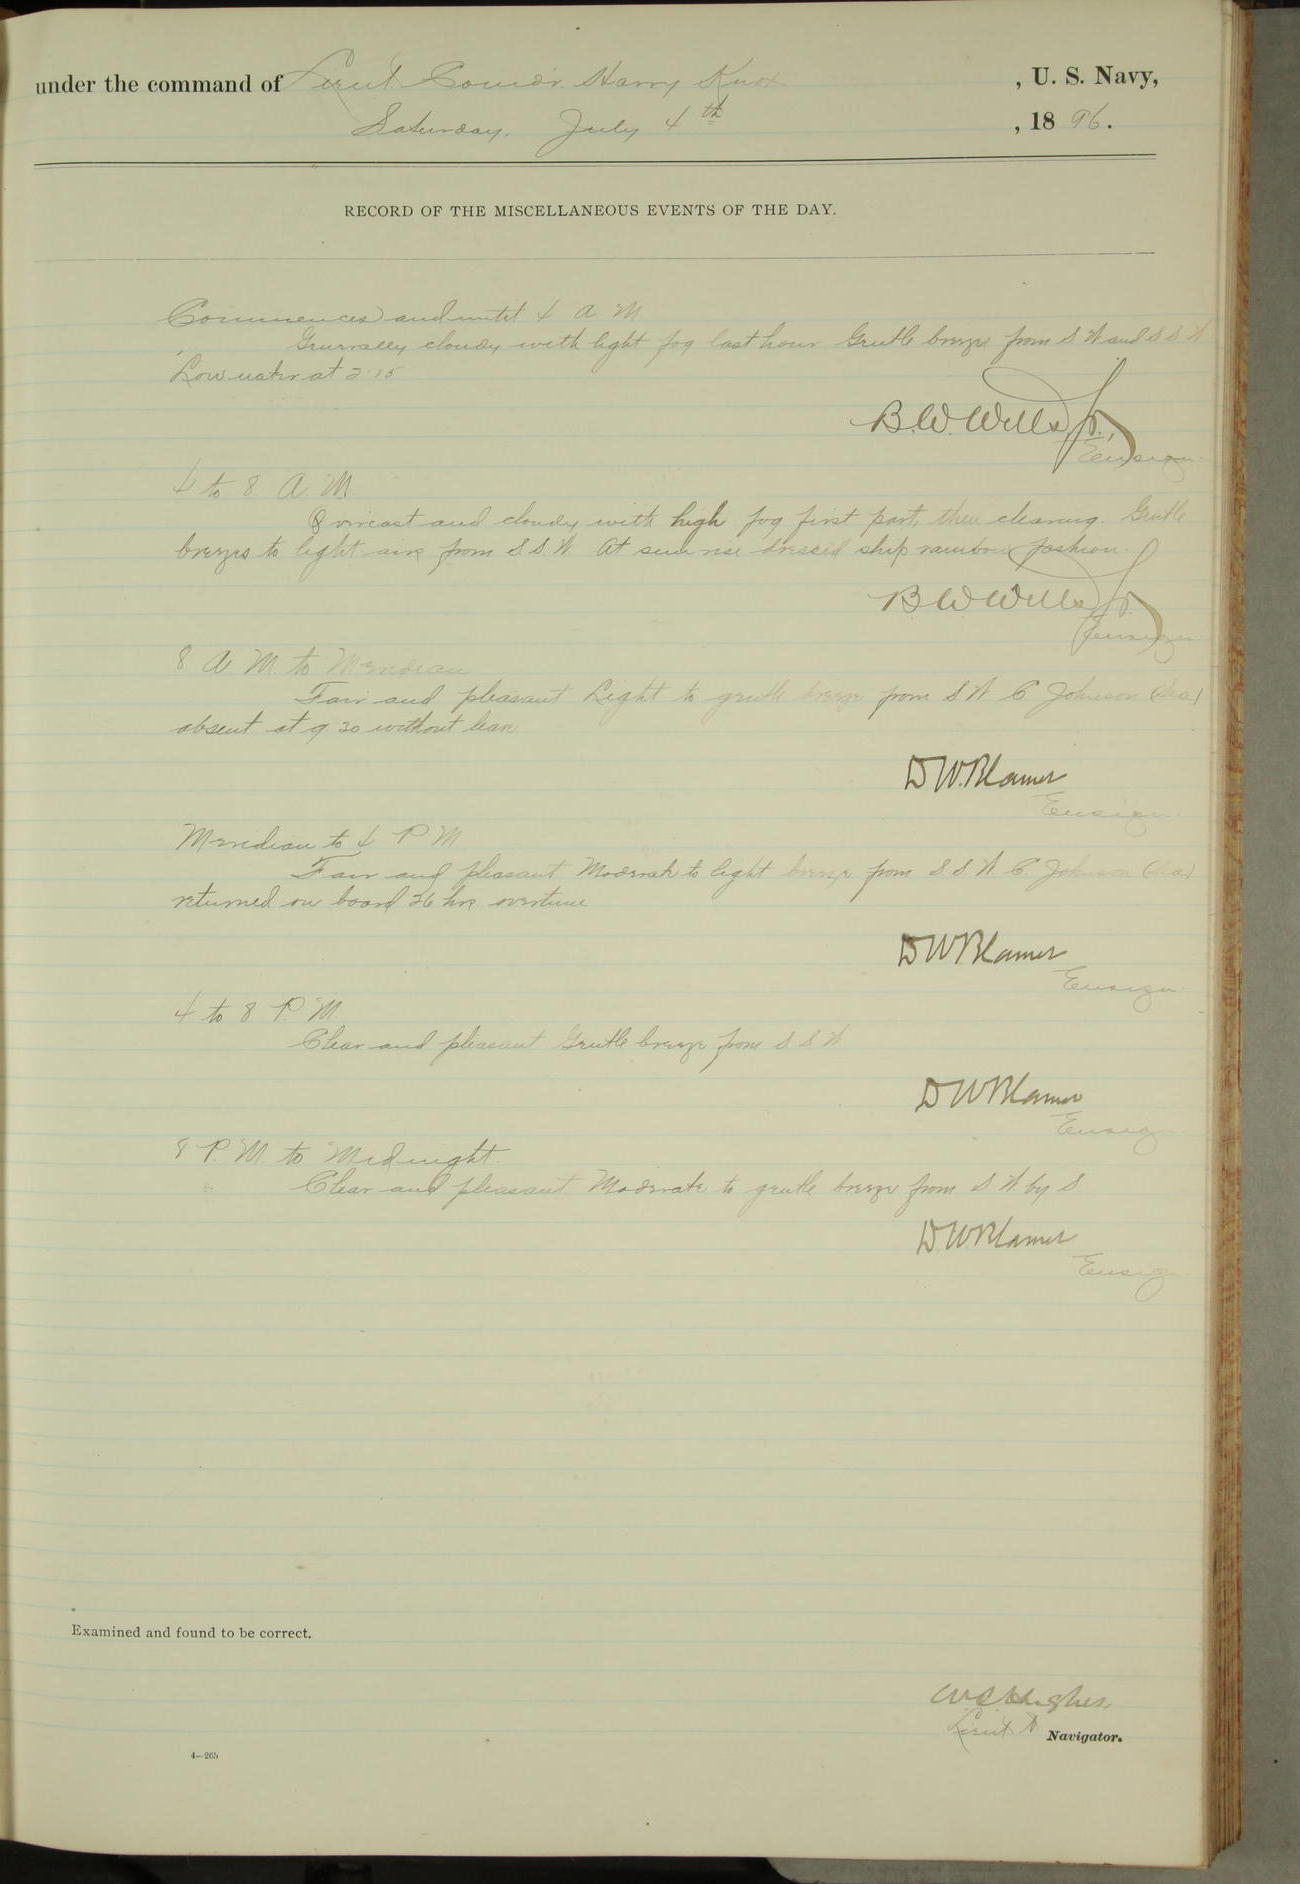 under the command of Lieut. Comdr. Harry Knox, U. S. Navy,
Saturday, July 4th, 1896.
RECORD OF THE MISCELLANEOUS EVENTS OF THE DAY.
Commences and until 4 A. M.
Generally cloudy with light fog last hour Gentle breeze from S W and S S W
Low water at 2.15
B. W. Wells, Jr.,
Ensign
4 to 8 A. M.
Overcast and cloudy with high fog first part, then clearing. Gentle
breezes to light airs from S S W At sun rise dressed ship rainbow fashion.
B W Wells Jr.
Ensign
8 A. M. to Meridian
Fair and pleasant Light to gentle breeze from S W C Johnson (Sea)
absent at 9 30 without leave
D. W. Blamer
Ensign
Meridian to 4 P M
Fair and pleasant Moderate to light breeze from S S W. C. Johnson (Sea)
returned on board 26 hrs overtime
D W Blamer
Ensign
4 to 8 P. M.
Clear and pleasant Gentle breeze from S S W
D W Blamer
Ensign
8 P. M. to Midnight.
Clear and pleasant Moderate to gentle breeze from S W. by S
D. W. Blamer
Ensign
Examined and found to be correct.
Hughes,
Lieut. Navigator.
4—265